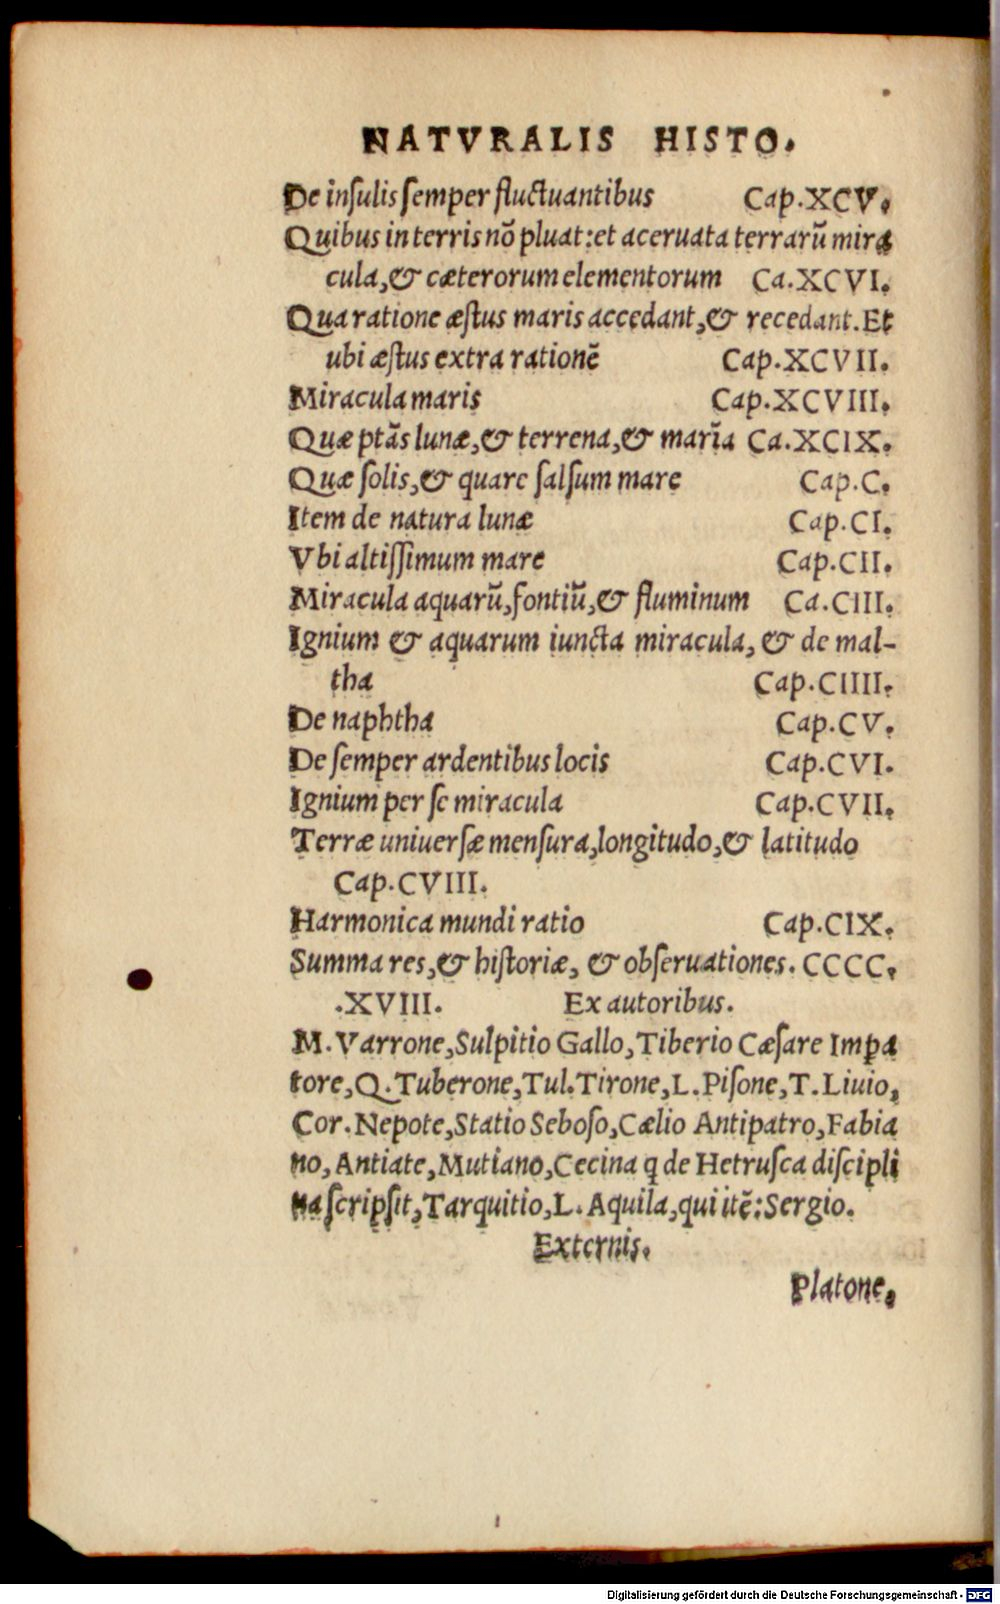 NATVRALIS HISTO.
De inſulis ſemper fluctuantibus Cap.XCV.
Quibus in terris nõ pluat:et aceruata terrarũ mira
cula,& cæterorum elementorum Ca.XCVI.
Qua ratione æſtus maris accedant,& recedant.Et
ubi æſtus extra rationẽ Cap.XCVII.
Miracula maris Cap.XCVIII.
Quæ ptãs lunæ,& terrena,& marĩa Ca.XCIX.
Quæ ſolis,& quare ſalſum mare Cap.C.
Item de natura lunæ Cap.CI.
Vbi altiſſimum mare Cap.CII.
Miracula aquarũ,fontiũ,& fluminum Ca.CIII.
Ignium & aquarum iuncta miracula, & de mal-
tha Cap.CIIII.
De naphtha Cap.CV.
De ſemper ardentibus locis Cap.CVI.
Ignium per ſe miracula Cap.CVII.
Terræ uniuerſæ menſura,longitudo,& latitudo
Cap.CVIII.
Harmonica mundi ratio Cap.CIX.
Summa res,& hiſtoriæ, & obſeruationes. CCCC.
.XVIII. Ex autoribus.
M.Varrone,Sulpitio Gallo,Tiberio Cæſare Imꝑa
tore,Q.Tuberone,Tul.Tirone,L.Piſone,T.Liuio,
Cor.Nepote,Statio Seboſo,Cælio Antipatro,Fabia
no,Antiate,Mutiano,Cecina q̃ de Hetruſca diſcipli
na ſcripſit,Tarquitio,L.Aquila,qui itẽ:Sergio.
Externis.
Platone,
Digitalisierung gefördert durch die Deutsche Forschungsgemeinschaft - DFG